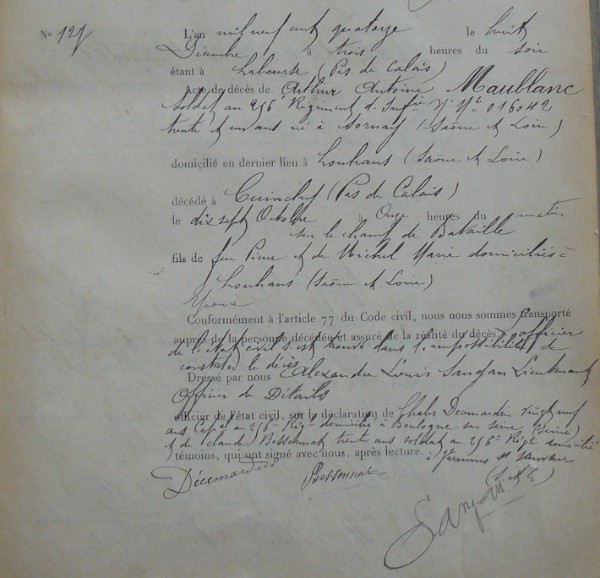 N° 127
L'an mil neuf cent quatorze le huit
Décembre à trois heures du soir
étant à Labourse (Pas de Calais)
Acte de décès de Arthur Antoine Maublanc
soldat au 256 Régiment d'Inf^ie N° M^le 016042
trente et un ans né à Sornay (Saône et Loire)
domicilié en dernier lieu à Louhans (Saône et Loire)
décédé à Cuinchy (Pas de Calais)
le dix sept Octobre à Onze heures du matin
sur le champ de Bataille
fils de feu Pierre et de Michel Marie domiciliés à
Louhans (Saône et Loire)
Conformément à l'article 77 du Code civil, nous nous sommes transporté
auprès de la personne décédée et assuré de la réalité du décès, l'officier
de l'état civil s'est trouvé dans l'impossibilité de
constater le décès
Dressé par nous Alexandre Louis Lieutenant
Officier de Détails
officier de l'état civil, sur la déclaration de Décemardin vingt neuf
ans au 256e Rég^t domicilié à Boulogne sur Seine (Seine)
et de Claude Bessonnat trente ans soldat au 256e Rég^t domicilié
témoins, qui ont signé avec nous, après lecture. à
Décemardin Bessonnat